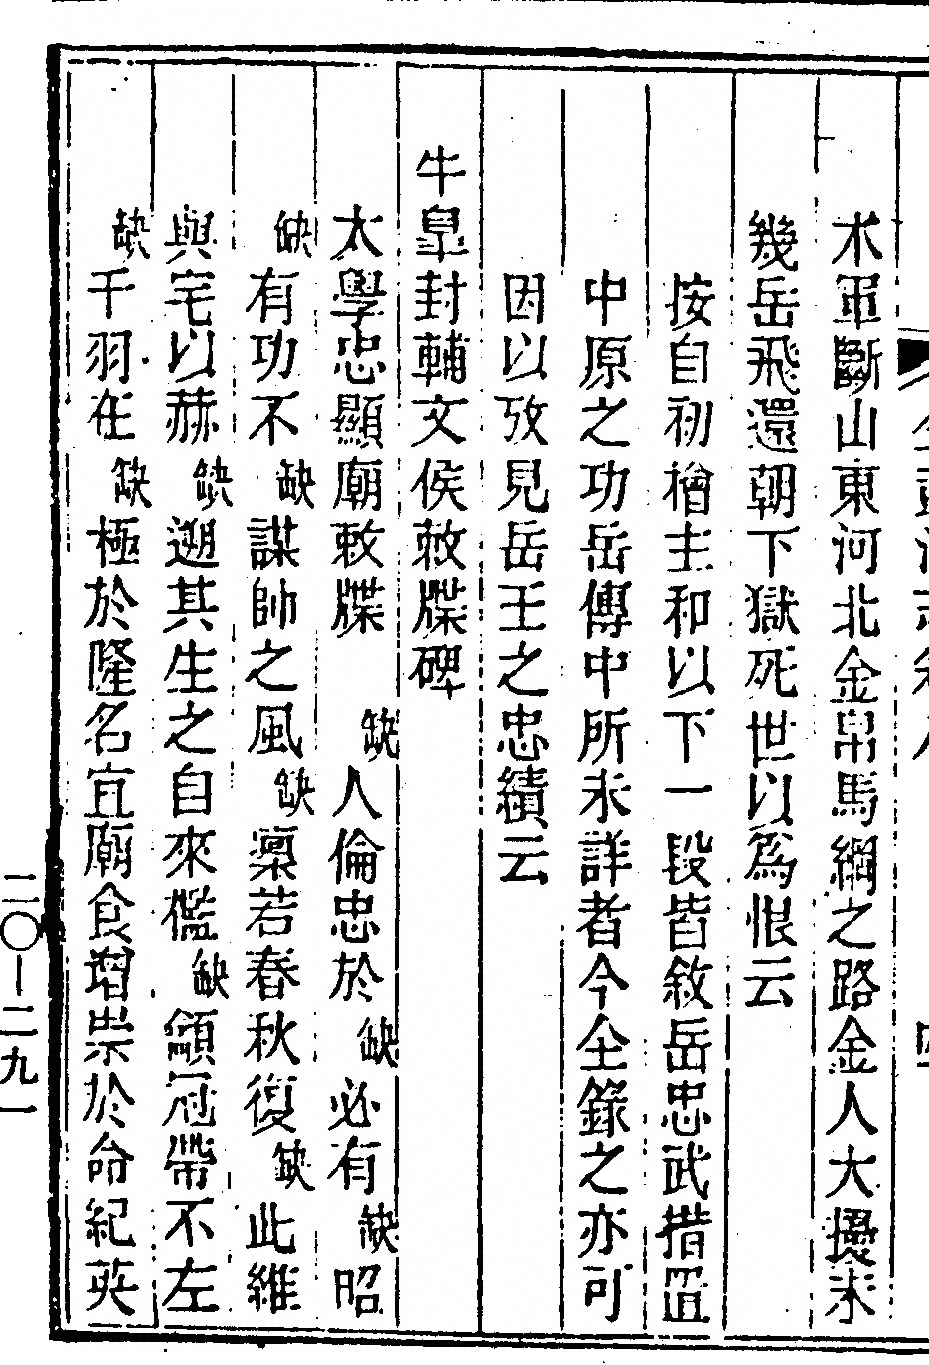 朮軍斷山東河北金帛馬綱之路金人大擾未
幾岳飛還朝下獄死世以爲恨云
按自初檜主和以下一段皆敘岳忠武措置
中原之功岳傳中所未詳者今全錄之亦可
因以攷見岳王之忠績云
牛皐封輔文侯敕牒碑
太學忠顯廟敕牒 缺人倫忠於缺必有缺昭
缺有功不缺謀帥之風缺稟若春秋復缺此維
與宅以赫缺遡其生之自來儖缺額冠帶不左
缺千羽在缺極於隆名宜廟食增祟於命紀英
二〇—二九一